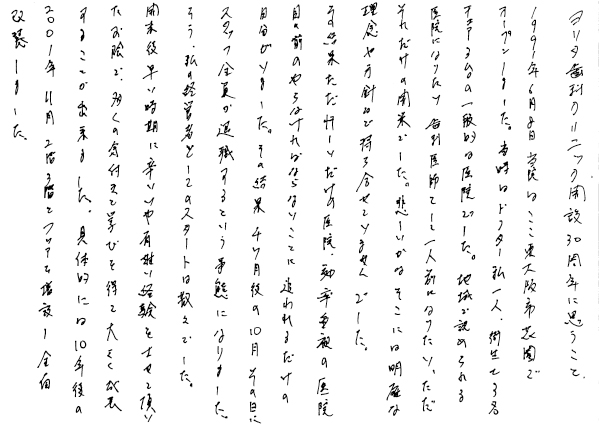 ヨリタ歯科クリニック開設30周年に思うこと、
1991年6月8日 当院はここ東大阪市花園で
オープンしました。当時はドクター私一人、衛生士3名
チェアー3台の一般的な医院でした。地域で認められる
医院になりたい 歯科医師として一人前になりたい、ただ
それだけの開業でした。悲しいかなそこには明確な
理念や方針は持ち合せていませんでした。
その結果ただ忙しいだけの医院、効率重視の医院
目の前のやらなければならないことに追われるだけの
自分がいました。その結果 4ヶ月後の10月 その日に
スタッフ全員が退職するという事態になりました。
そう、私の経営者としてのスタートは敗えでした。
開業後早い時期に辛いいや有難い経験をさせて頂い
たお陰で、多くの気付きで学びを得て大きく成長
することが出来ました。具体的には10年後の
2001年11月 2階3階とフロアーを増設し全面
改装しました。